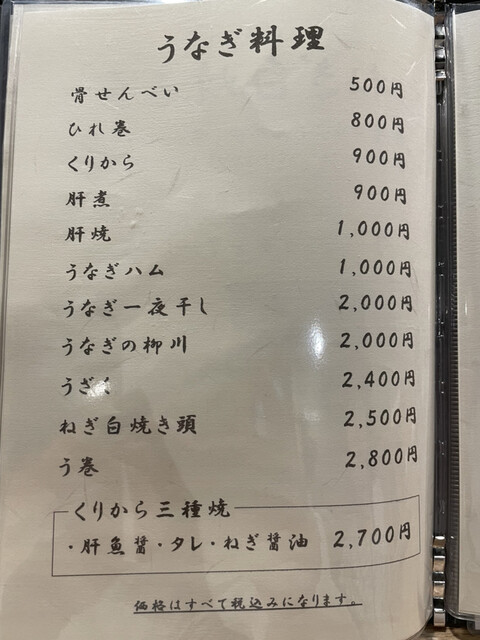 うなぎ料理
骨せんべい 500円
ひれ巻 800円
くりから 900円
肝煮 900円
肝焼 1,000円
うなぎハム 1,000円
うなぎ一夜干し 2,000円
うなぎの柳川 2,000円
うざく 2,400円
ねぎ白焼き頭 2,500円
う巻 2,800円
くりから三種焼
・肝魚醤・タレ・ねぎ醤油 2,700円
価格はすべて税込みになります。